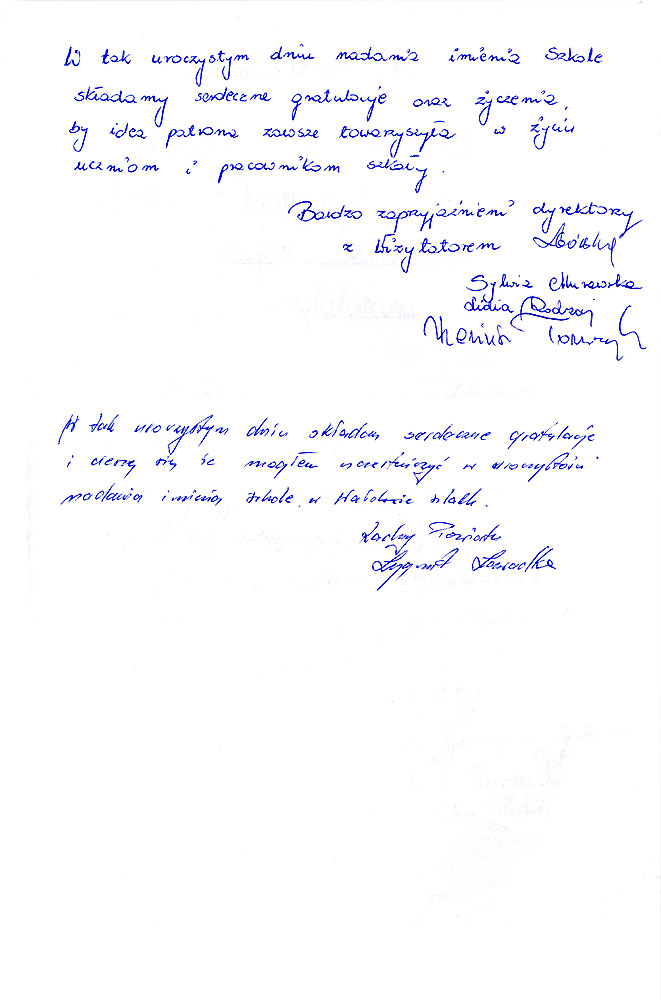 W tak uroczystym dniu nadania imienia Szkole
składamy serdeczne gratulacje oraz życzenia,
by idea patrona zawsze towarzyszyła w życiu
uczniom i pracownikom szkoły.
Bardzo zaprzyjaźnieni dyrektorzy
z Wizytatorem
Sylwia Murawska
Lidia Rodzaj
W tak uroczystym dniu składam serdeczne gratulacje
i cieszę się że mogłem uczestniczyć w uroczystości
nadania imienia szkole w
Radny Powiatu
Zygmunt